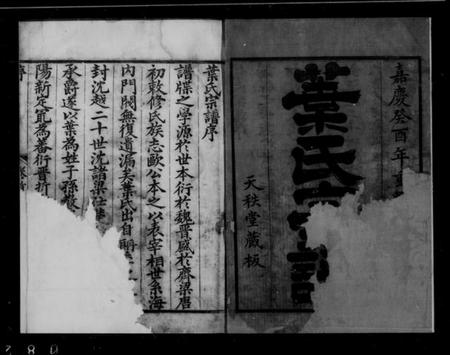 嘉慶癸酉年
葉氏宗譜
天秩堂藏板
葉氏宗譜序
譜牒之學源於世本衍於魏晉盛於齊梁唐
初敕修氏族志歐公本之以表宰相世系海
內門閥無復遺漏夫葉氏出自聃
封沈越二十世沈諸梁仕楚
承爵遂以葉為姓子孫散
陽新定
為蕃衍晋折